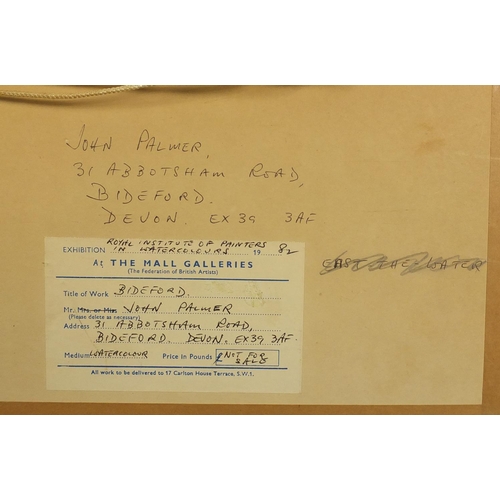 JOHN PALMER,
31 ABBOTSHAM ROAD,
BIDEFORD.
DEVON. EX39 3AF
ROYAL INSTITUTE OF PAINTERS
EXHIBITION IN WATERCOLOURS 1982
At THE MALL GALLERIES
(The Federation of British Artists)
Title of Work BIDEFORD.
Mr. Mrs. or Miss JOHN PALMER
(Please delete as necessary)
Address 31 ABBOTSHAM ROAD,
BIDEFORD. DEVON. EX39 3AF.
Medium WATERCOLOUR Price in Pounds £ NOT FOR
SALE
All work to be delivered to 17 Carlton House Terrace, S.W.1.
EAST THE WATER